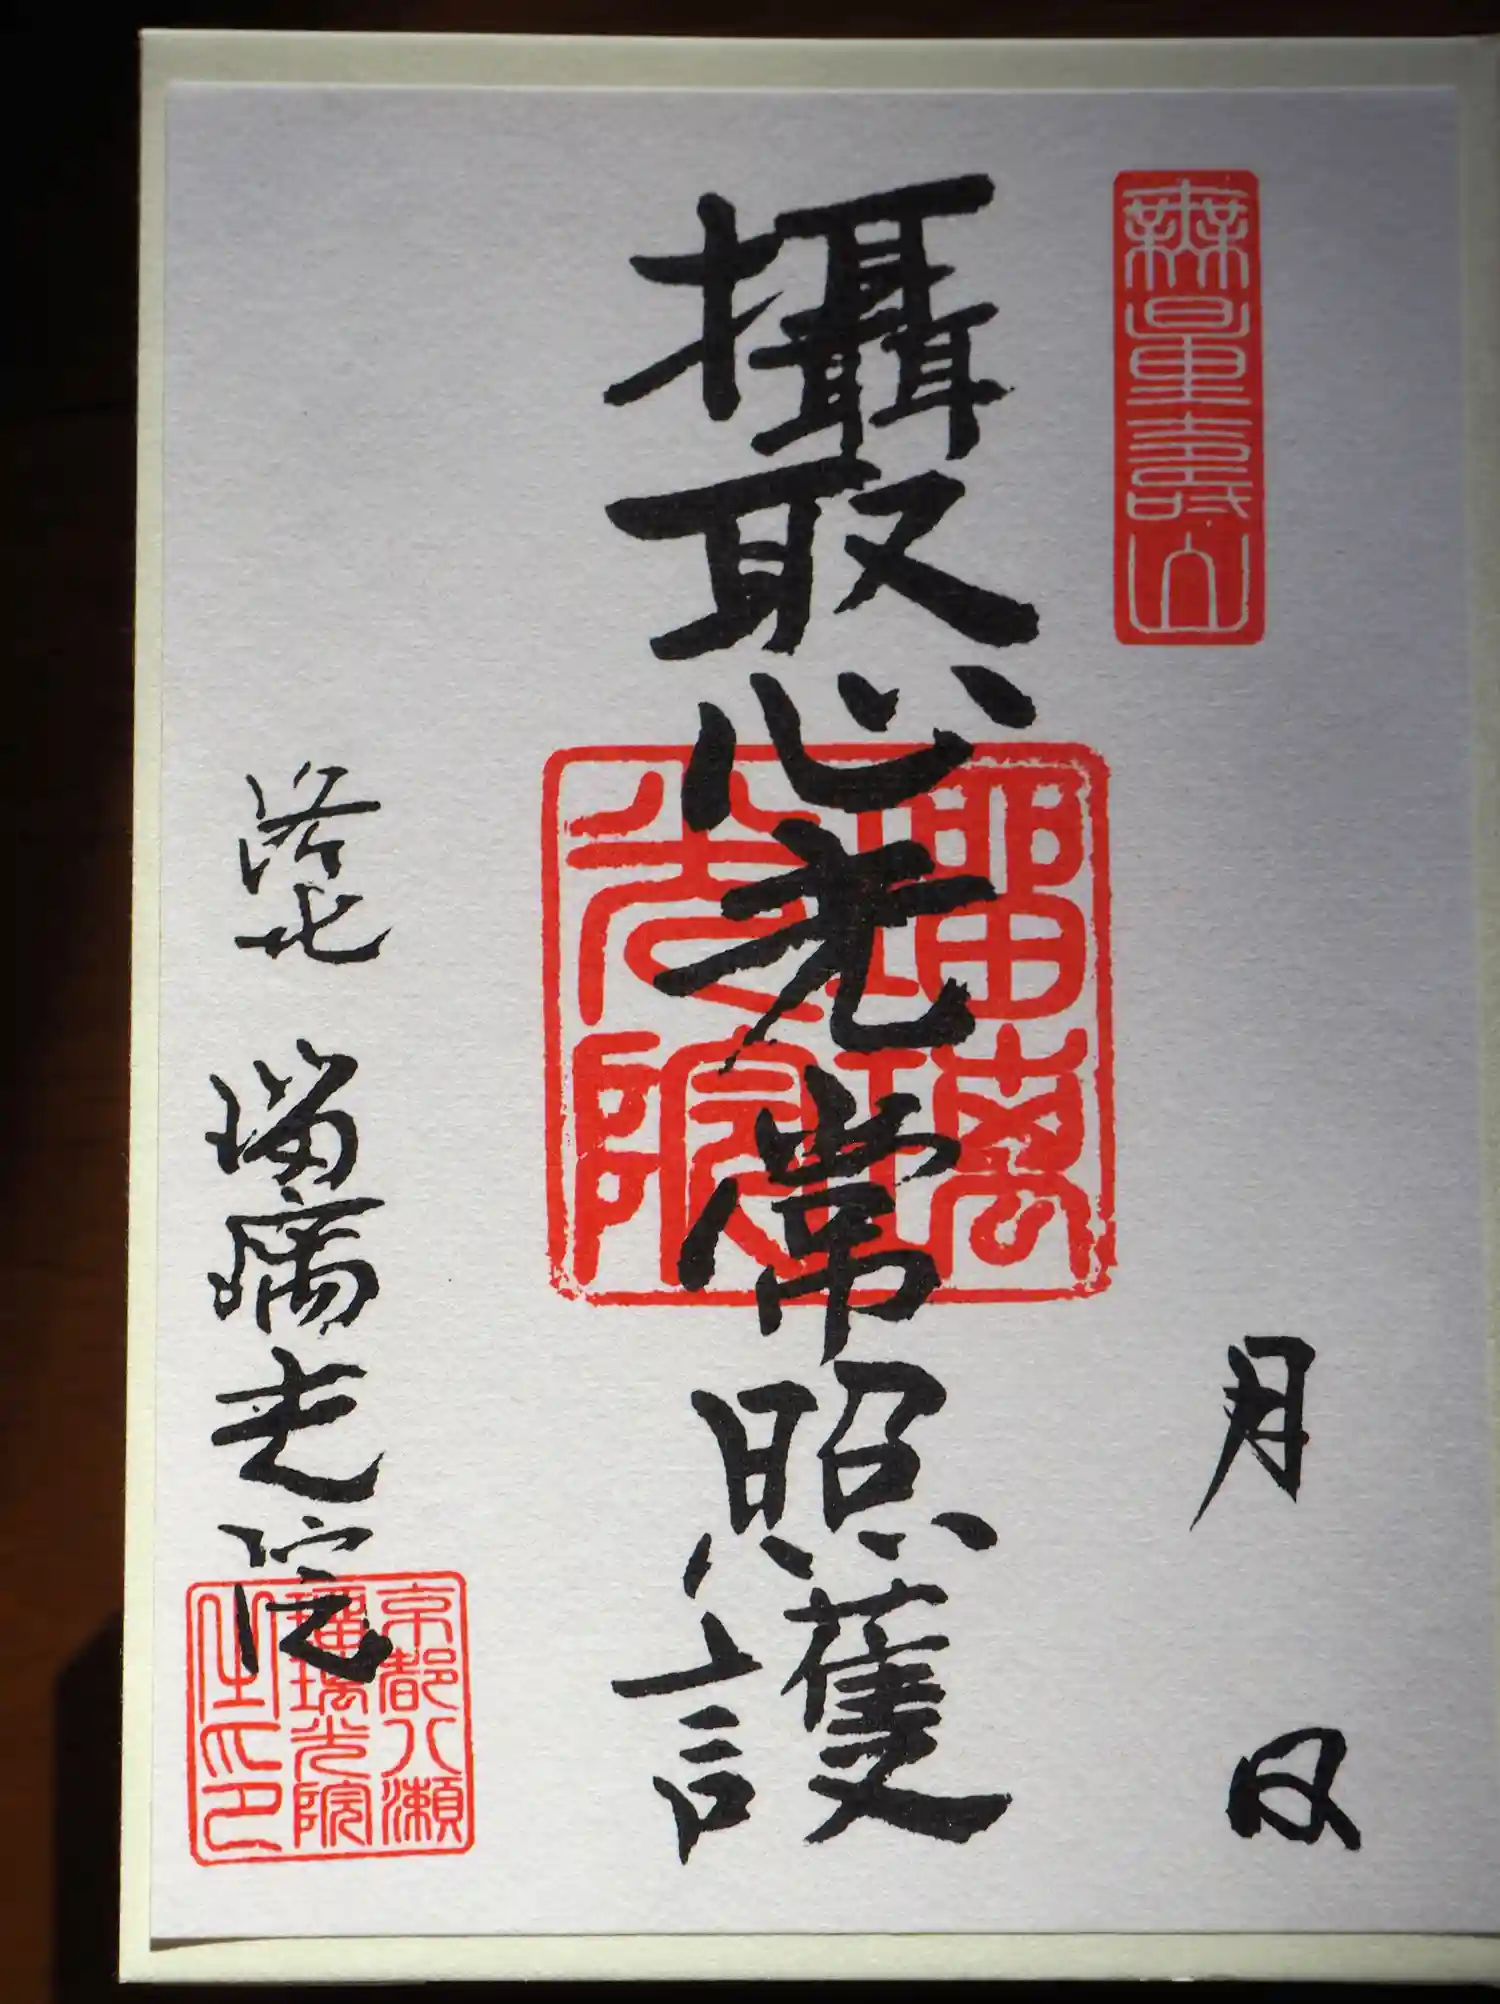 無量壽山
月 日
攝取心光常照護
瑠璃
光院
洛北 瑠璃光院
京都八瀬
瑠璃光院
之印